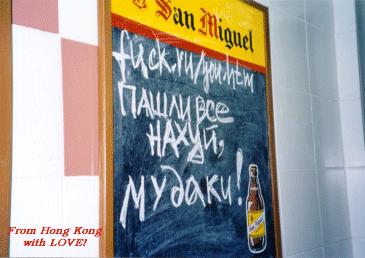 San Miguel
fuck.ru/you.htm
ПАШЛИ ВСЕ
НАХУЙ,
мудаки!
From Hong Kong
with LOVE!